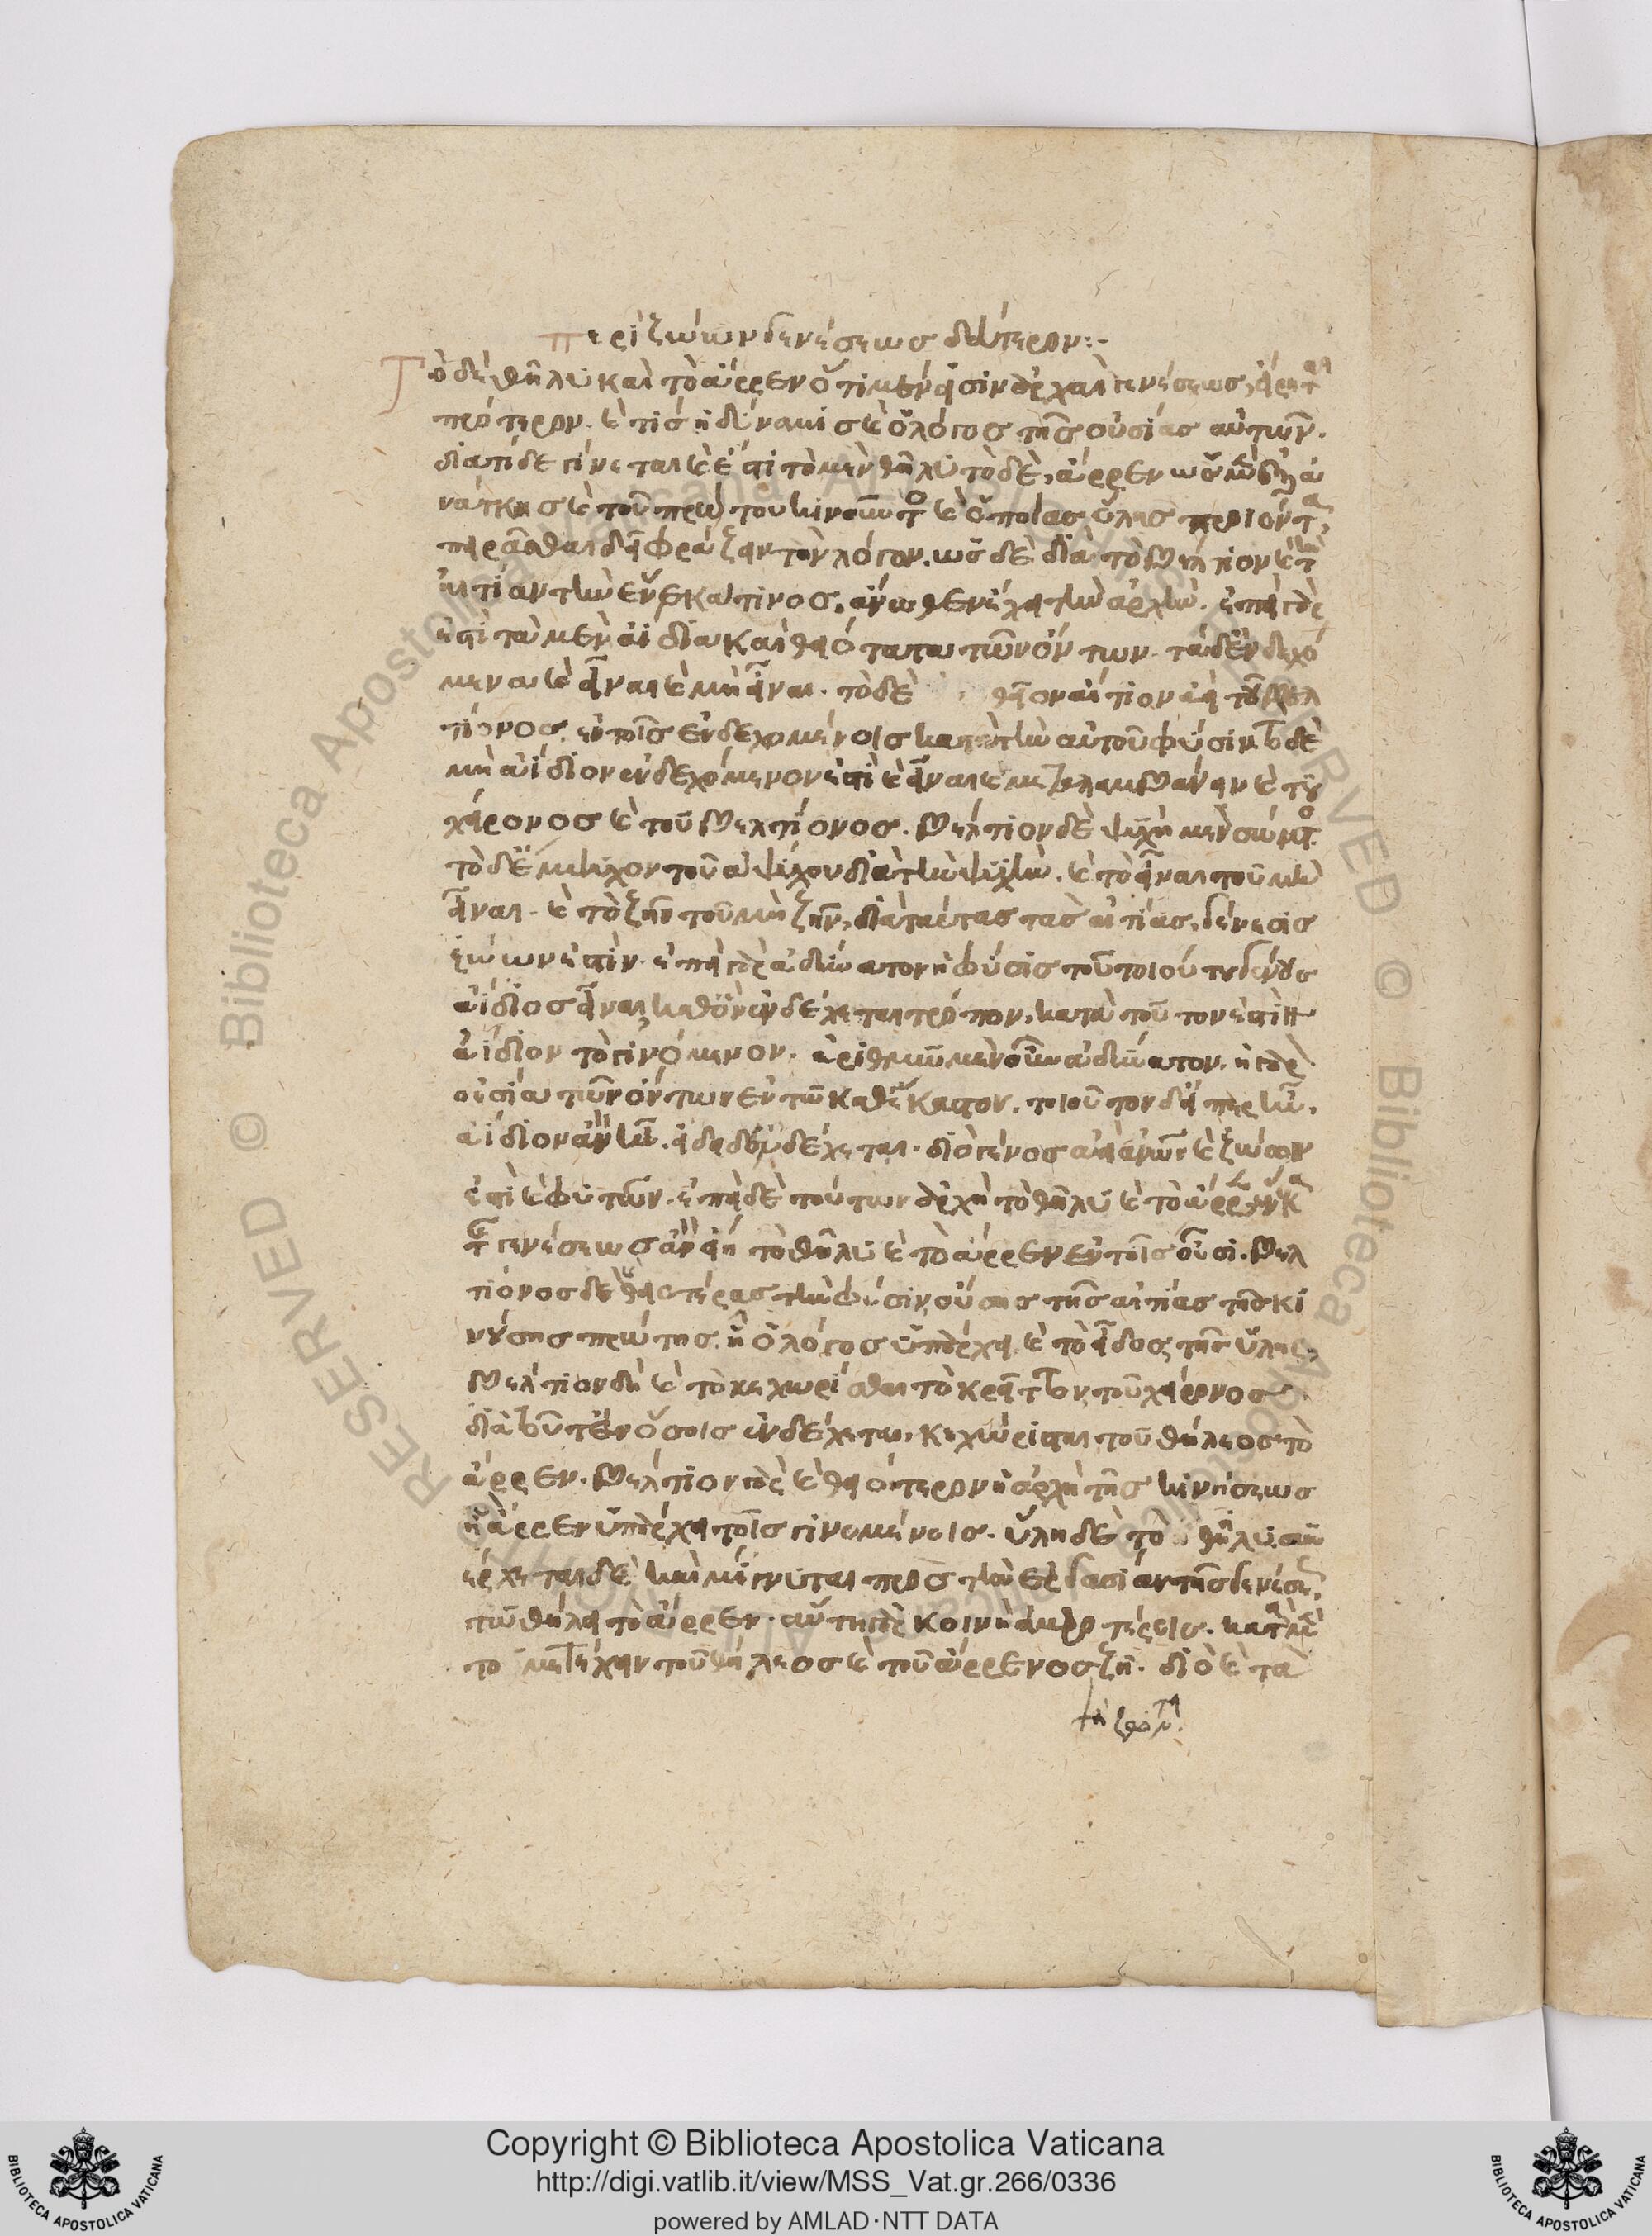 περὶ ζώων γενέσεως δεύτερον:-
Τὸ δὲ θῆλυ καὶ τὸ ἄρρεν ὅτι μέν εἰσιν ἀρχαὶ γενέσεως, εἴρηται
πρότερον. καὶ τίς ἡ δύναμις καὶ ὁ λόγος τῆς οὐσίας αὐτῶν.
διατί δὲ γίνεται καὶ ἐστὶ τὸ μὲν θῆλυ τὸ δὲ, ἄρρεν ὡς μὲν ἐξ ἀ
νάγκης καὶ τοῦ πρώτου κινοῦντος καὶ ὁποίας ὕλης προϊόντα
πειρᾶσθαι δεῖ φράζειν τὸν λόγον. ὡς δὲ διὰ τὸ βέλτιον καὶ τὴν
αἰτίαν τὴν ἕνεκα τινος, ἄνωθεν ἔχει τὴν ἀρχὴν. ἐπεὶ γὰρ
ἐστὶ τὰ μὲν ἀίδια καὶ θειότατα τῶν ὄντων. τὰ δὲ ἐνδεχό
μενα καὶ εἶναι καὶ μὴ εἶναι. τὸ δὲ θεῖον αἴτιον ἀεὶ τοῦ βελ
τίονος ἐν τοῖς ἐνδεχομένοις κατὰ τὴν αὐτοῦ φύσιν τὸ δὲ
μὴ ἀίδιον ἐνδεχόμενον ἐστὶ καὶ εἶναι καὶ μεταλαμβάνειν καὶ τοῦ
χείρονος καὶ τοῦ βελτίονος. βέλτιον δὲ ψυχὴ μὲν σώματος
τὸ δ' ἔμψυχον τοῦ ἀψύχου διὰ τὴν ψυχὴν. καὶ τὸ εἶναι τοῦ μὴ
εἶναι. καὶ τὸ ζῆν τοῦ μὴ ζῆν, διὰ ταύτας τὰς αἰτίας, γένεσις
ζώων ἐστίν. ἐπεὶ γὰρ ἀδύνατον ἡ φύσις τοῦ τοιούτου γένους
ἀίδιος εἶναι, καθ' ὃν ἐνδέχεται τρόπον, κατὰ τοῦτον ἐστὶν
ἀίδιον τὸ γινόμενον. ἀριθμῶ μὲν οὖν ἀδύνατον. ἡ γὰρ
οὐσία τῶν ὄντων ἐν τῶ καθ' ἕκαστον. τοιοῦτον δ' εἴπερ ἦν,
ἀίδιον ἂν ἦν. εἴδει δ' ἐνδέχεται. διὸ γένος ἀεὶ ἀνθρώπων καὶ ζώων
ἐστὶ καὶ φυτῶν. ἐπεὶ δὲ τούτων ἀρχὴ τὸ θῆλυ καὶ τὸ ἄρρεν ἕνεκα
τῆς γενέσεως ἂν εἴη τὸ θῆλυ καὶ τὸ ἄρρεν ἐν τοῖς οὖσι. βελ
τίονος δὲ καὶ θειοτέρας τὴν φύσιν οὔσης τῆς αἰτίας τῆς κι
νούσης πρώτης. ἧ ὁ λόγος ὑπάρχει καὶ τὸ εἶδος τῆς ὕλης,
βέλτιον δὴ καὶ τὸ κεχωρίσθαι τὸ κρεῖττον τοῦ χείρονος
διὰ τοῦτ' ἐν ὅσοις ἐνδέχεται, κεχώρισται τοῦ θήλεος τὸ
ἄρρεν. βέλτιον γὰρ καὶ θειότερον ἡ ἀρχὴ τῆς κινήσεως
ἣ ἄρρεν ὑπάρχει τοῖς γινομένοις. ὕλη δὲ τὸ θῆλυ. συν
έρχεται δὲ καὶ μίγνυται πρὸς τὴν ἐργασίαν τῆς γενέσεως
τῶ θήλει τὸ ἄρρεν. αὕτη γὰρ κοινὴ ἀμφοτέροις. κατὰ μὲν
το μετέχειν τοῦ θήλεος καὶ τοῦ ἄρρενος ζῆ. διὸ καὶ τὰ